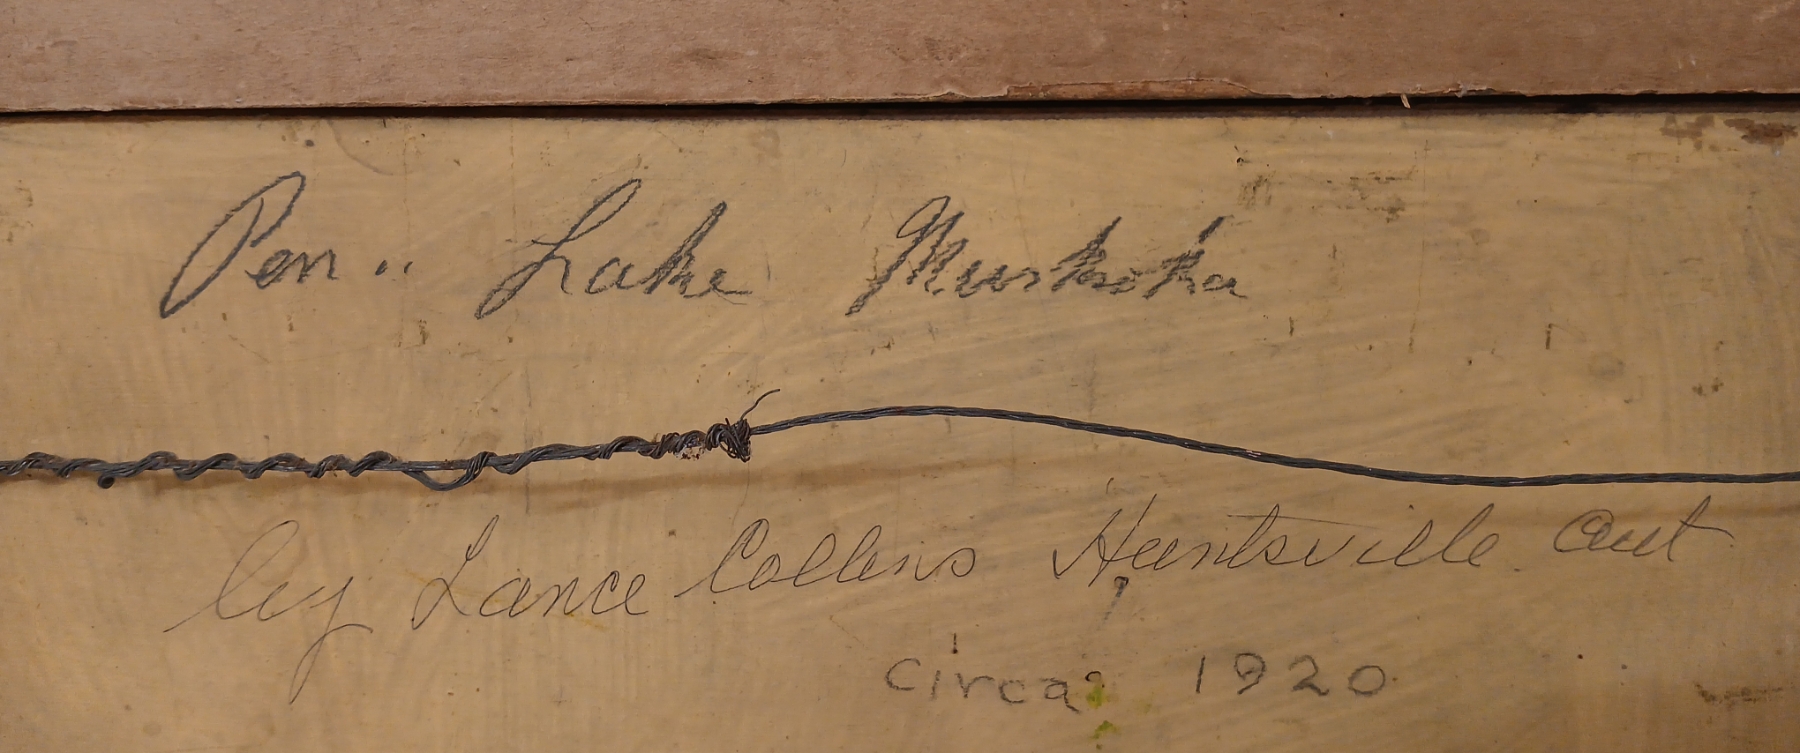 Pen.. Lake Muskoka
by Lance Collins Huntsville Ont
circa 1920